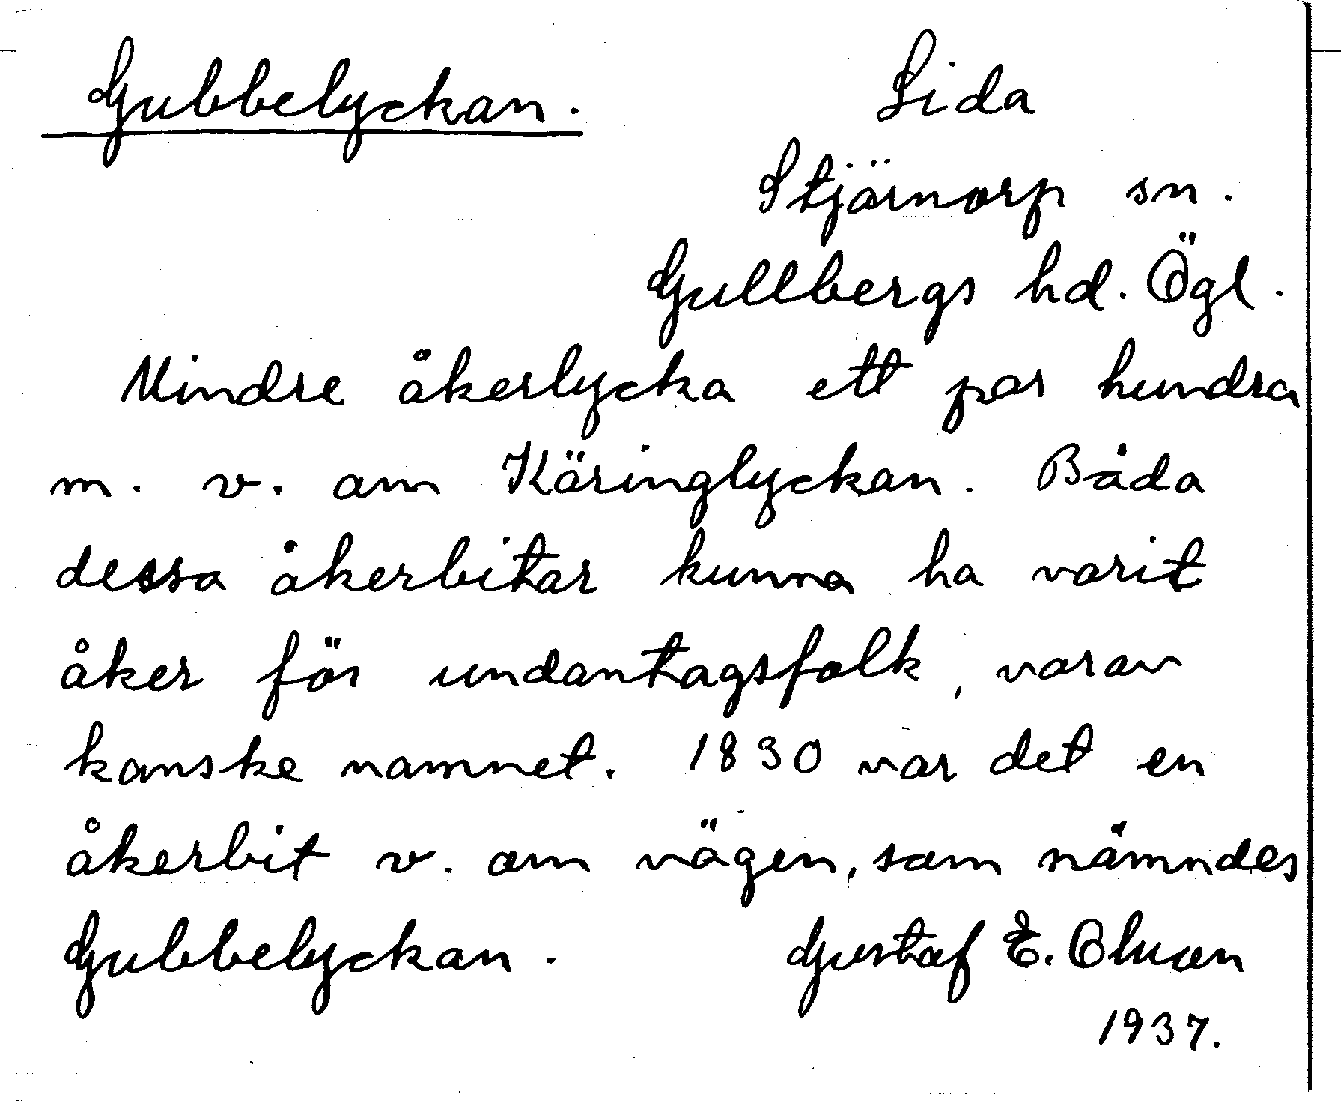 Gubbelyckan.
Lida
Stjärnorp sn.
Gullbergs hd. Ögl.
Mindre åkerlycka ett par hundra
m. v. om Käringlyckan. Båda
dessa åkerbitar kunna ha varit
åker för undantagsfolk, varav
kanske namnet. 1830 var det en
åkerbit v. om vägen, som nämndes
Gubbelyckan.
Gustaf E.
1937.